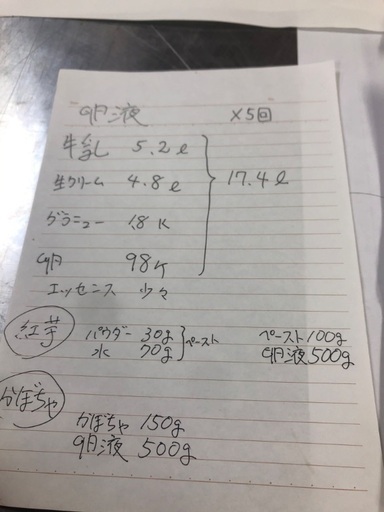 卵液 ×5回
牛乳 5.2ℓ
生クリーム 4.8ℓ 17.4ℓ
グラニュー 1.8K
卵 98ケ
エッセンス 少々
紅芋 パウダー 30g ペースト ペースト100g
水 70g 卵液500g
かぼちゃ
かぼちゃ 150g
卵液 500g